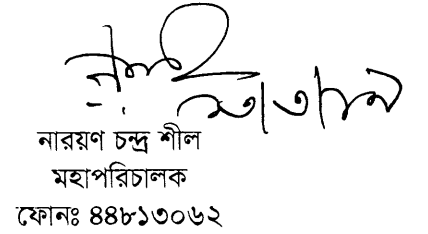 নারয়ণ চন্দ্র শীল
মহাপরিচালক
ফোনঃ ৪৪৮১৩০৬২